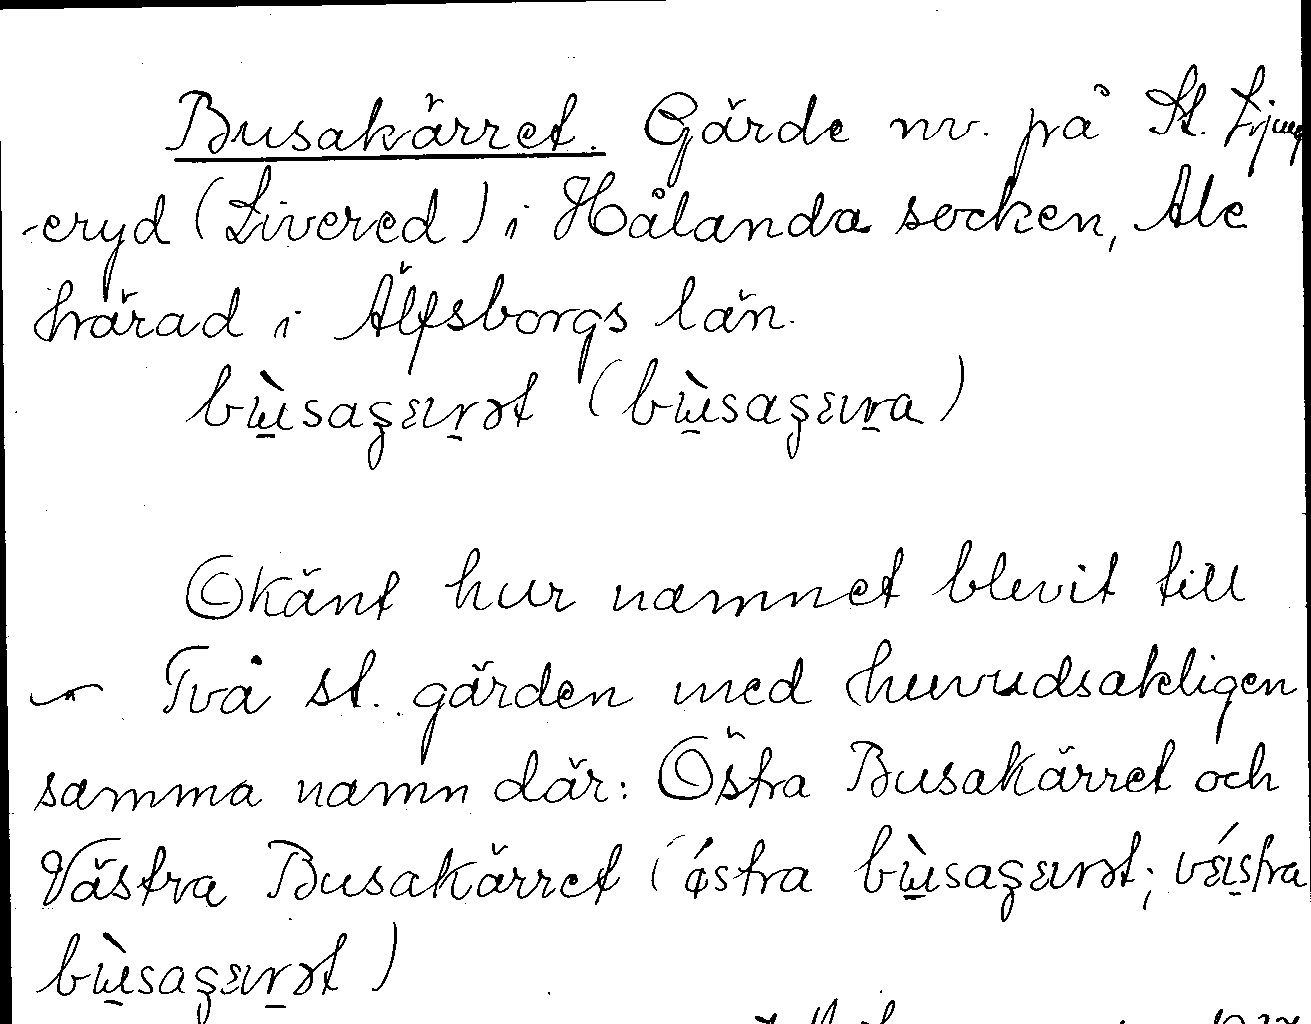 Busakärret. Gärde nv. på St. Ljung
-eryd (Livered) i Hålanda socken, Ale
härad i Älfsborgs län.
bùsaʂɛırət (bùsaʂɛıra)
Okänt hur namnet blevit till
Två st. gärden med huvudsakligen
samma namn där: Östra Busakärret och
Västra Busakärret (ǿstra bùsaʂɛırət; vɛ́ıstra
bùsaʂɛırət)